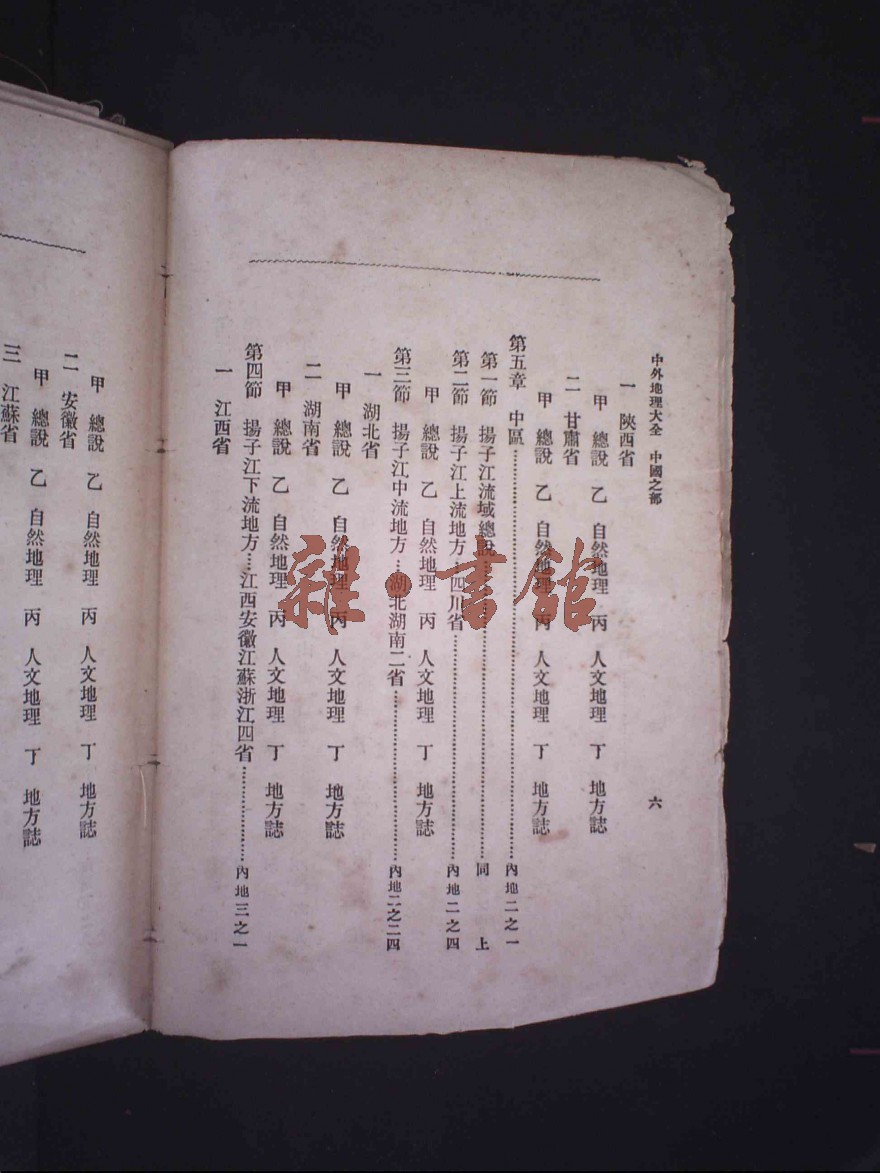 中外地理大全　中國之部　六
一　陝西省
甲　總說　乙　自然地理　丙　人文地理　丁　地方誌
二　甘肅省
甲　總說　乙　自然地理　丙　人文地理　丁　地方誌
第五章　中區…………內地二之一
第一節　揚子江流域總說…………同上
第二節　揚子江上流地方…四川省…………內地二之四
甲　總說　乙　自然地理　丙　人文地理　丁　地方誌
第三節　揚子江中流地方…湖北湖南二省…………內地二之二四
一　湖北省
甲　總說　乙　自然地理　丙　人文地理　丁　地方誌
二　湖南省
甲　總說　乙　自然地理　丙　人文地理　丁　地方誌
第四節　揚子江下流地方…江西安徽江蘇浙江四省…………內地三之一
一　江西省
甲　總說　乙　自然地理　丙　人文地理　丁　地方誌
二　安徽省
甲　總說　乙　自然地理　丙　人文地理　丁　地方誌
三　江蘇省
雜·書館